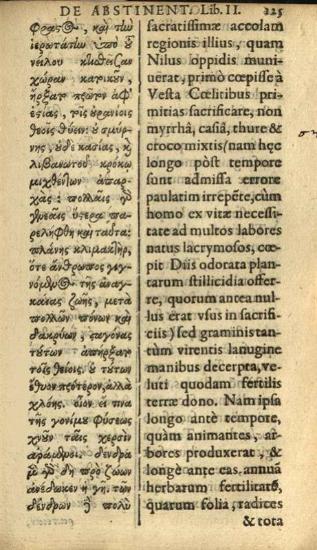 DE ABSTINENT. Lib. II. 225
φρασ@, καὶ τῶν
ἱερωτάτων ὑπὸ τοῦ
νείλου κτισθεῖσαν
χώραν κατοικοῦν,
ἤρξατο πρῶτον ἀφ'
ἑστίας, τοῖς οὐρανίοις
θεοῖς θύειν· οὐ σμύρ-
νης, οὐδὲ κασίας, κ̀
λιβανωτοῦ κρόκῳ
μιχθέντων ἀπαρ-
χάς: πολλαῖς γὸ
γενεαῖς ὕστερα πα-
ρελήφθη καὶ ταῦτα:
πλάνης
ὅτε ἄνθρωπος γιγ-
νόμενος τῆς ἀναγ-
καίας ζωῆς, μετὰ
πολλῶν πόνων καὶ
δακρύων, σαγόνας
τούτων ἀπήρξατο
τοῖς θεοῖς. οὐ τούτων
ἔθυον πρότερον, ἀλλὰ
χλόης. οἷον εἴ τινα
τῆς γονίμου φύσεως
χνοῦν ταῖς χερσὶν
ἀράμενοι. δένδρα
μὲν γὸ δὴ πρὸ ζώων
ἀνέδωκεν ἡ γῆ. τῶν
δένδρων ὃ πολὺ
sacratissimæ accolam
regionis illius, quam
Nilus oppidis muni-
uerat, primò cœpisse à
Vesta Cœlitibus pri-
mitias sacrificare, non
myrrhâ, casiâ, thure &
croco mixtis (nam hęc
longo pòst tempore
sunt admissa errore
paulatim irrepēte, cùm
homo ex vitæ necessi-
tate ad multos labores
natus lacrymosos, cœ-
pit Diis odorata plan-
tarum stillicidia offer-
re, quorum antea nul-
lus erat vsus in sacrifi-
ciis) sed graminis tan-
tùm virentis lanugine
manibus decerpta, ve-
luti quodam fertilis
terræ dono. Nam ipsa
longo antè tempore,
quàm animantes, ar-
bores produxerat, &
longè ante eas, annuâ
herbarum fertilitate,
quarum folia, radices
& tota